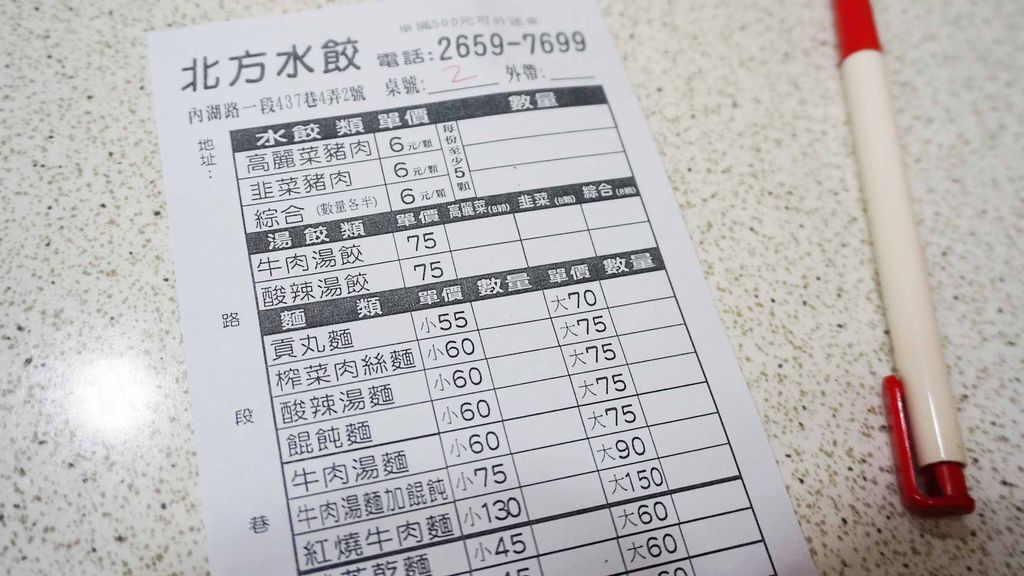 意滿500元可外送車
北方水餃 電話:2659-7699
內湖路一段437巷4弄2號 桌號: 2 外帶:
地址:
水餃類 單價 數量
高麗菜豬肉 6元/顆 每份至少5顆
韭菜豬肉 6元/顆
綜合(數量各半) 6元/顆
湯餃類 單價 高麗菜(8顆) 韭菜(8顆) 綜合(8顆)
牛肉湯餃 75
酸辣湯餃 75
麵類 單價 數量 單價 數量
貢丸麵 小55 大70
榨菜肉絲麵 小60 大75
酸辣湯麵 小60 大75
餛飩麵 小60 大75
牛肉湯麵 小60 大75
牛肉湯麵加餛飩 小75 大90
紅燒牛肉麵 小130 大150
菜乾麵 小45 大60
大60
路
段
巷